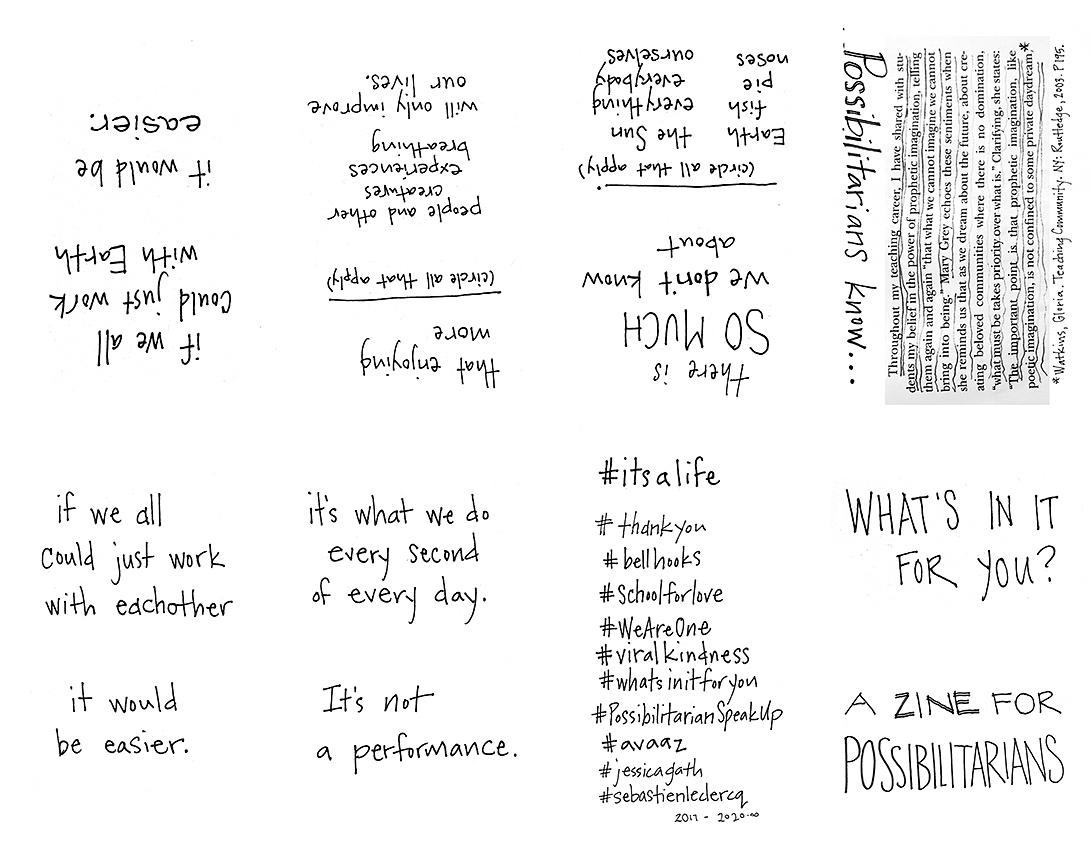 if we all
could just work
with Earth
it would be
easier.
that enjoying
more
(circle all that apply)
people and other
creatures
experiences
breathing
will only improve
our lives.
there is
SO MUCH
we don't know
about
(circle all that apply)
Earth the Sun
fish everything
pie everybody
noses ourselves
Possibilitarians know...
Throughout my teaching career, I have shared with stu-
dents my belief in the power of prophetic imagination, telling
them again and again "that what we cannot imagine we cannot
bring into being." Mary Grey echoes these sentiments when
she reminds us that as we dream about the future, about cre-
ating beloved communities where there is no domination,
"what must be takes priority over what is." Clarifying, she states:
"The important point is that prophetic imagination, like
poetic imagination, is not confined to some private daydream,*
* Watkins, Gloria. Teaching Community. NY: Routledge, 2003. P195.
if we all
could just work
with eachother
it would
be easier.
it's what we do
every second
of every day.
It's not
a performance.
#itsalife
#thankyou
#bellhooks
#Schoolforlove
#WeAreOne
#viralkindness
#whatsinitforyou
#PossibilitarianSpeakUp
#avaaz
#jessicagath
#sebastienleclercq
2017 - 2020-∞
WHAT'S IN IT
FOR YOU?
A ZINE FOR
POSSIBILITARIANS